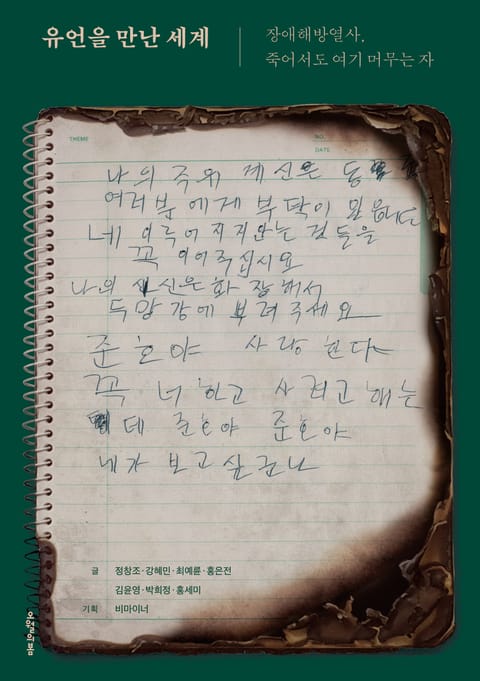 유언을 만난 세계
장애해방열사,
죽어서도 여기 머무는 자
THEME
NO.
DATE
나의 주위 계신은 동
여러분에게 부탁이 있읍니다
네 이루어지지 않는 것들을
꼭 이어주십시요
나의 신은 화장해서
두망강에 뿌려주세요
준호야 사랑한다
꼭 너하고 사려고 해는
데 준호야 준호야
네가 보고 싶구나
글 정창조·강혜민·최예륜·홍은전
김윤영·박희정·홍세미
기획 비마이너
오월의봄